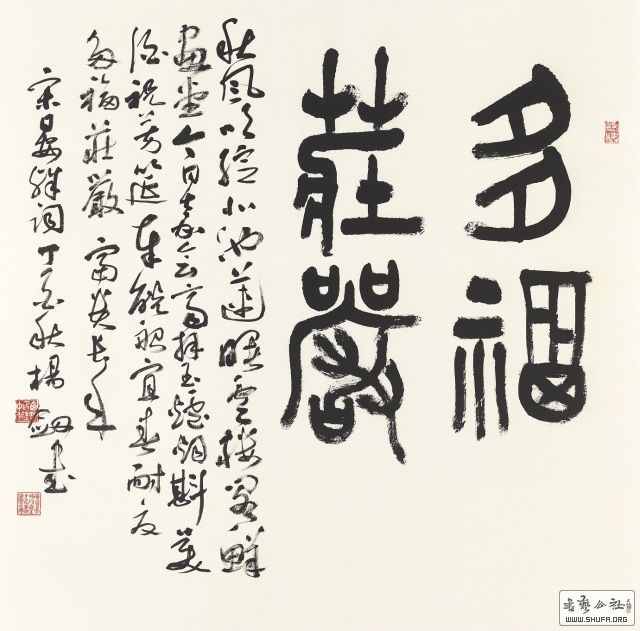 多福
莊嚴
秋風吹綻北池蓮曙雲樓閣鮮
畫堂今日嘉會齊拜玉爐烟斟美
酒祝芳筵奉觥船宜春耐夏
多福莊嚴富貴長年
宋晏殊詞丁秋楊書
書藝公社
WWW.SHUFA.ORG